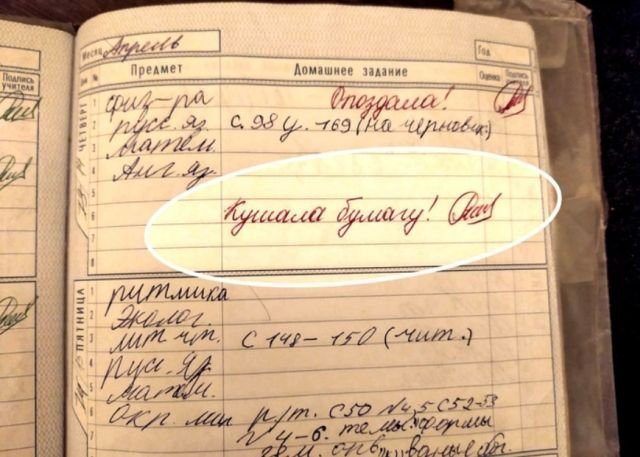 Месяц Апрель Год
№ Предмет Домашнее задание Оценка Подпись учителя
Подпись учителя
ЧЕТВЕРГ
1 физ-ра Опоздала!
2 русс. яз. с. 98 у. 169 (на черновик.)
3 матем.
4 Анг. яз.
5
6 Кушала бумагу!
7
8
ПЯТНИЦА
1 ритмика
2 Эколог.
3 лит чт. с 148-150 (чит.)
4 русс. яз.
5 матем.
6 окр. мир р/т. с50 №4,5 с52-53
№ 4-6. темы: формы